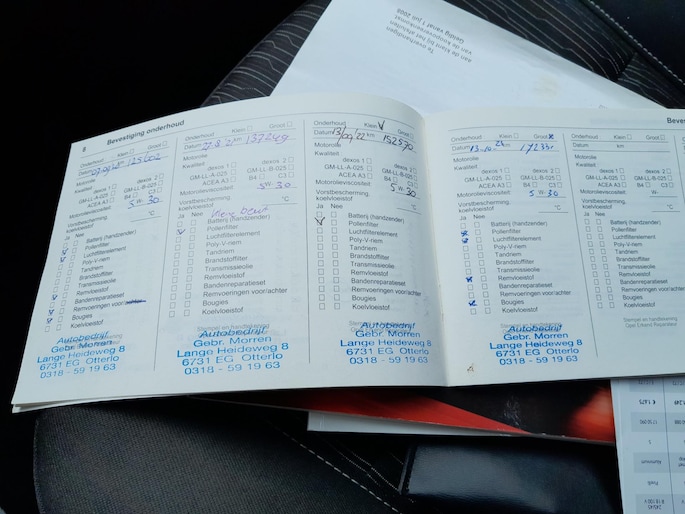 8
Bevestiging onderhoud
Onderhoud Klein Groot
Datum km
Motorolie
Kwaliteit
dexos 1 dexos 2
GM-LL-A-025 GM-LL-B-025
ACEA A3 B4 C3
Motorolieviscositeit 5 W- 30
Vorstbescherming
koelvloeistof °C
Ja Nee
Batterij (handzender)
Pollenfilter
Luchtfilterelement
Poly-V-riem
Tandriem
Brandstoffilter
Transmissieolie
Remvloeistof
Bandenreparatieset
Remvoeringen voor/achter
Bougies
Koelvloeistof
Autobedrijf
Gebr. Morren
Lange Heideweg 8
6731 EG Otterlo
0318 - 59 19 63
Onderhoud Klein Groot
Datum km 137249
Motorolie
Kwaliteit
dexos 1 dexos 2
GM-LL-A-025 GM-LL-B-025
ACEA A3 B4 C3
Motorolieviscositeit 5 W- 30
Vorstbescherming
koelvloeistof °C
Ja Nee
Batterij (handzender)
Pollenfilter
Luchtfilterelement
Poly-V-riem
Tandriem
Brandstoffilter
Transmissieolie
Remvloeistof
Bandenreparatieset
Remvoeringen voor/achter
Bougies
Koelvloeistof
Stempel en handtekening
Autobedrijf
Gebr. Morren
Lange Heideweg 8
6731 EG Otterlo
0318 - 59 19 63
Onderhoud Klein Groot
Datum 13/09/22 km 152570
Motorolie
Kwaliteit
dexos 1 dexos 2
GM-LL-A-025 GM-LL-B-025
ACEA A3 B4 C3
Motorolieviscositeit 5 W- 30
Vorstbescherming
koelvloeistof °C
Ja Nee
Batterij (handzender)
Pollenfilter
Luchtfilterelement
Poly-V-riem
Tandriem
Brandstoffilter
Transmissieolie
Remvloeistof
Bandenreparatieset
Remvoeringen voor/achter
Bougies
Koelvloeistof
Autobedrijf
Gebr. Morren
Lange Heideweg 8
6731 EG Otterlo
0318 - 59 19 63
Onderhoud Klein Groot
Datum km
Motorolie
Kwaliteit
dexos 1 dexos 2
GM-LL-A-025 GM-LL-B-025
ACEA A3 B4 C3
Motorolieviscositeit 5 W- 30
Vorstbescherming
koelvloeistof °C
Ja Nee
Batterij (handzender)
Pollenfilter
Luchtfilterelement
Poly-V-riem
Tandriem
Brandstoffilter
Transmissieolie
Remvloeistof
Bandenreparatieset
Remvoeringen voor/achter
Bougies
Koelvloeistof
Autobedrijf
Gebr. Morren
Lange Heideweg 8
6731 EG Otterlo
0318 - 59 19 63
Beves
Onderhoud Klein Groot
Datum km
Motorolie
Kwaliteit
dexos 1 dexos 2
GM-LL-A-025 GM-LL-B-025
ACEA A3 B4 C3
Motorolieviscositeit W-
Vorstbescherming
koelvloeistof °C
Ja Nee
Batterij (handzender)
Pollenfilter
Luchtfilterelement
Poly-V-riem
Tandriem
Brandstoffilter
Transmissieolie
Remvloeistof
Bandenreparatieset
Remvoeringen voor/achter
Bougies
Koelvloeistof
Stempel en handtekening
Opel Erkend Reparateur
Te overhandigen
aan de klant bij het afsluiten
van de koopovereenkomst
Geldig vanaf 1 juli 2008